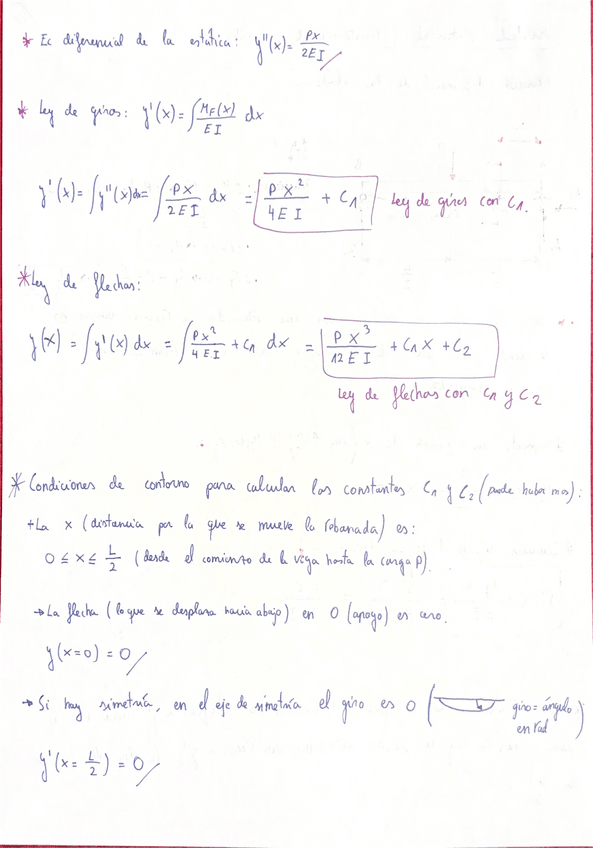 * Ec diferencial de la estática: y''(x) = Px / 2EI
* Ley de giros: y'(x) = ∫ M_F(x) / EI dx
y'(x) = ∫ y''(x) dx = ∫ Px / 2EI dx = P x² / 4EI + C1 Ley de giros con C1.
* Ley de flechas:
y(x) = ∫ y'(x) dx = ∫ Px² / 4EI + C1 dx = P x³ / 12EI + C1 x + C2
Ley de flechas con C1 y C2
* Condiciones de contorno para calcular las constantes C1 y C2 (puede haber mas):
+ La x (distancia por la que se mueve la rebanada) es:
0 ≤ x ≤ L/2 (desde el comienzo de la viga hasta la carga P).
→ La flecha (lo que se desplaza hacia abajo) en 0 (apoyo) es cero.
y(x=0) = 0
→ Si hay simetría, en el eje de simetría el giro es 0 ( giro = ángulo
en rad )
y'(x = L/2) = 0